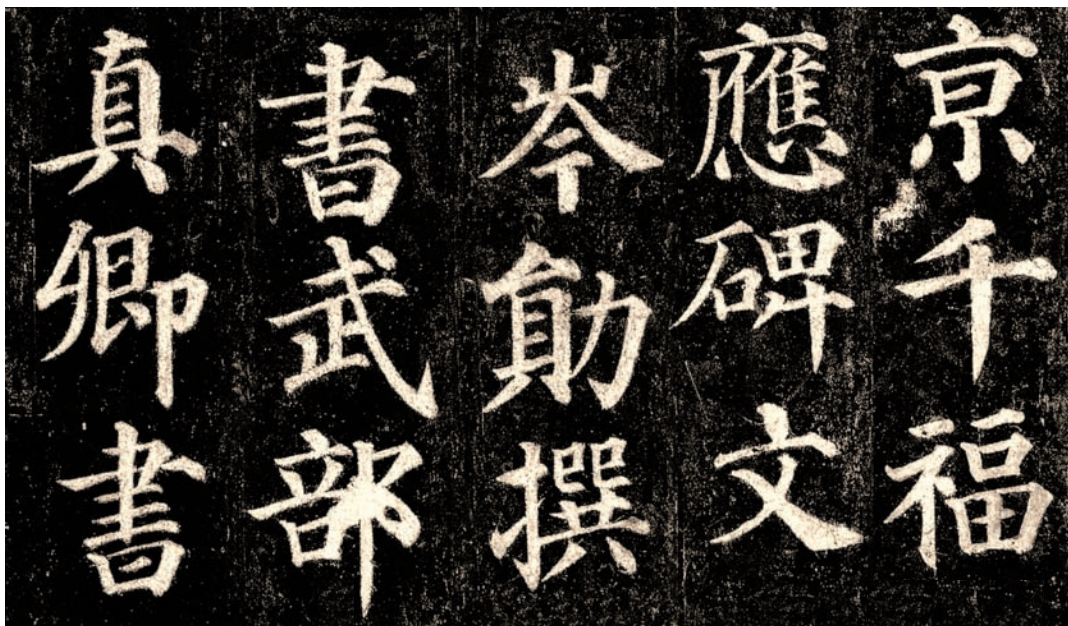 亰千福
應碑文
岑勛撰
書武部
真卿書